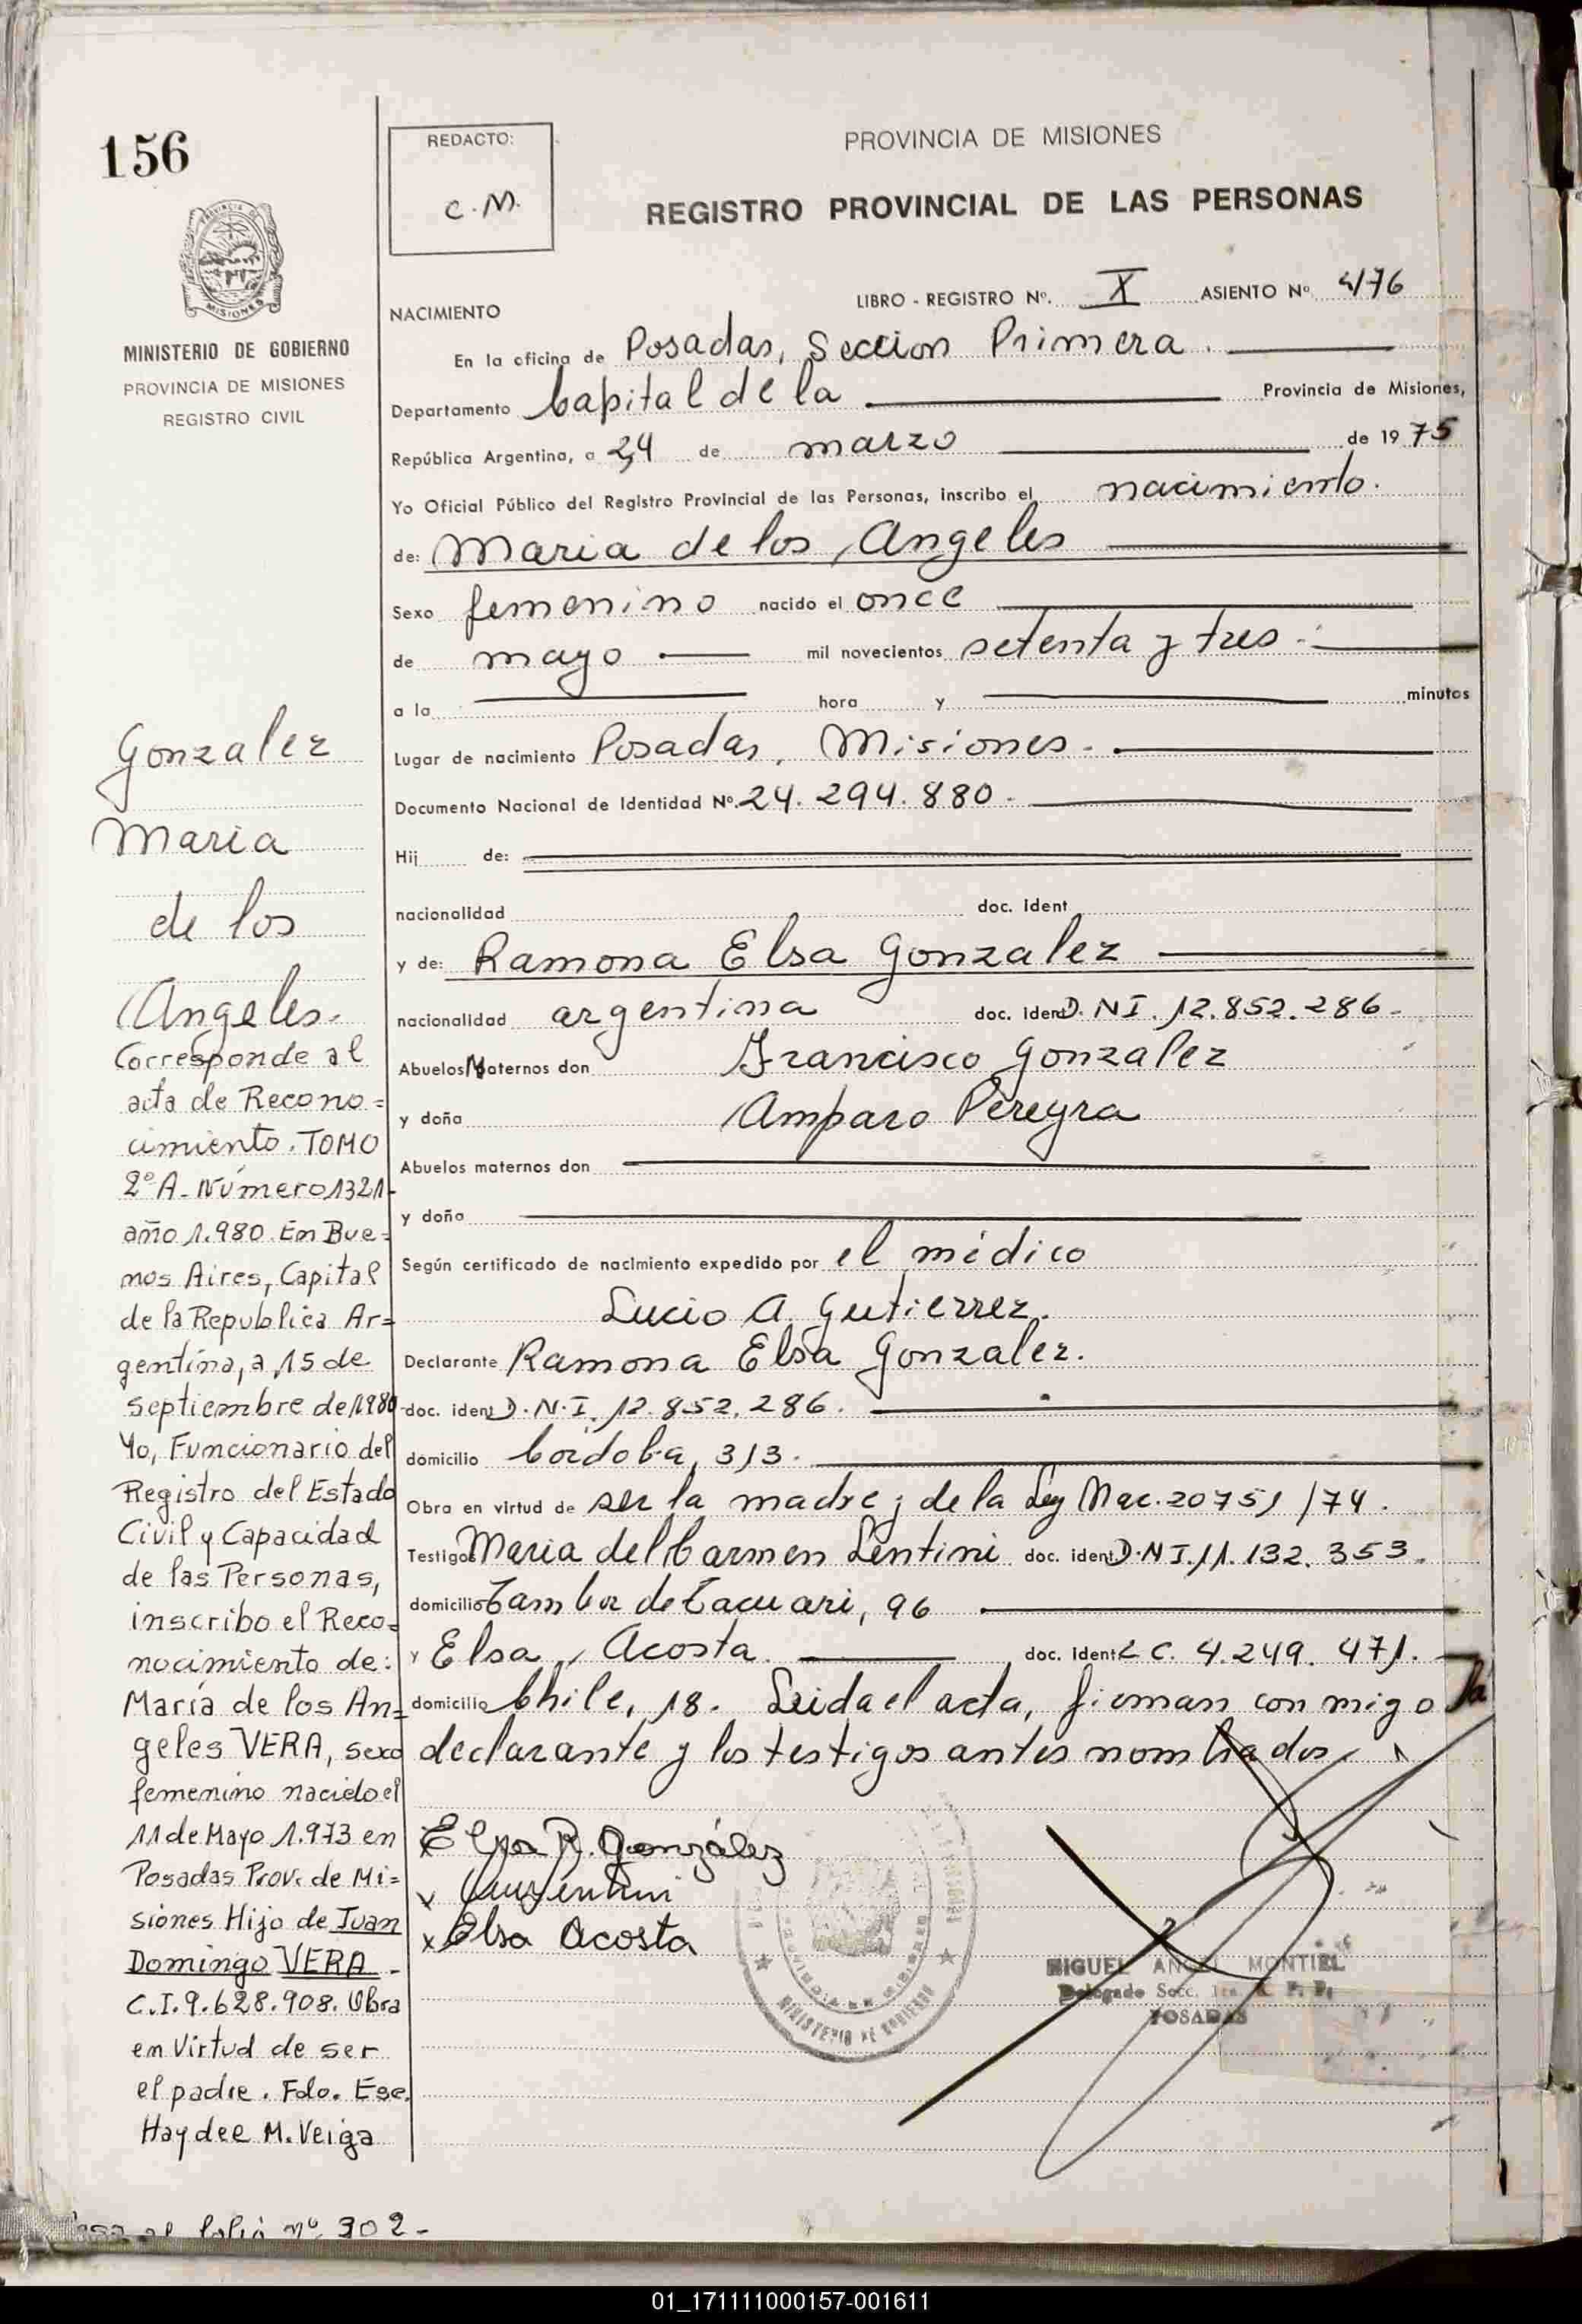 156
REDACTO:
C.M.
PROVINCIA DE MISIONES
REGISTRO PROVINCIAL DE LAS PERSONAS
MISIONES
MINISTERIO DE GOBIERNO
PROVINCIA DE MISIONES
REGISTRO CIVIL
LIBRO - REGISTRO Nº. X ASIENTO Nº 4176
NACIMIENTO
En la oficina de Posadas, Seccion Primera.
Departamento Capital de la Provincia de Misiones,
República Argentina, a 24 de marzo de 1975
Yo Oficial Público del Registro Provincial de las Personas, inscribo el nacimiento.
de: Maria de los Angeles
Sexo femenino nacido el once
de mayo mil novecientos setenta y tres
a la hora y minutos
Lugar de nacimiento Posadas, Misiones.
Documento Nacional de Identidad Nº. 24.294.880.
Hij de:
nacionalidad doc. ident
y de: Ramona Elsa Gonzalez
nacionalidad argentina doc. ident D.NI. 12.852.286.
Abuelos Maternos don Francisco Gonzalez
y doña Amparo Pereyra
Abuelos maternos don
y doña
Según certificado de nacimiento expedido por el médico
Lucio A. Gutierrez.
Declarante Ramona Elsa Gonzalez.
doc. ident D.N.I. 12.852.286.
domicilio Córdoba, 313.
Obra en virtud de ser la madre; de la Ley Nac. 20751/74.
Testigos Maria del Carmen Lentini doc. ident D.N I. 11.132.353.
domicilio Tambor de Tacuari, 96
y Elsa Acosta. doc. ident L C. 4.249.471.
domicilio Chile, 18. Leida el acta, firman con migo la
declarante y los testigos antes nombrados
Elsa R. González
x Elsa Acosta
MINISTERIO DE GOBIERNO
MIGUEL ANGEL MONTIEL
Delegado Secc. 1ra. R. P. P.
POSADAS
Gonzalez
Maria
de los
Angeles.
Corresponde al
acta de Recono=
cimiento. TOMO
2º A- Número 1321-
año 1.980. En Bue=
nos Aires, Capital
de la Republica Ar=
gentina, a 15 de
septiembre de 1980
Yo, Funcionario del
Registro del Estado
Civil y Capacidad
de las Personas,
inscribo el Reco=
nocimiento de:
María de los An=
geles VERA, sexo
femenino nacido el
11 de Mayo 1.973 en
Posadas Prov. de Mi=
siones Hijo de Juan
Domingo VERA -
C.I. 9.628.908. Obra
en Virtud de ser
el padre. Fdo. Esc.
Haydee M. Veiga
al folio nº 302-
01_171111000157-001611